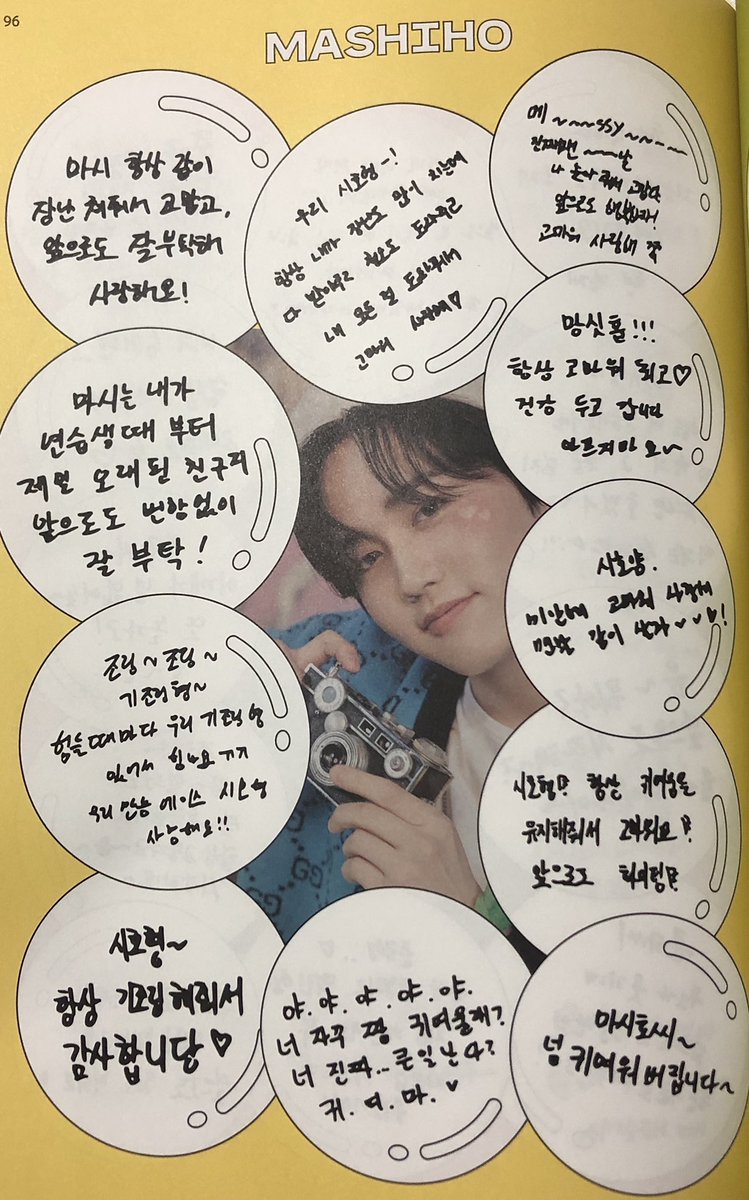 96
MASHIHO
마시 항상 같이
장난 쳐줘서 고맙고,
앞으로도 잘부탁해
사랑해요!
우리 시호형~!
항상 내가 장난도 많이 치는데
다 받아주고
내 모든 걸 도와줘서
고마워 사랑해♡
메~~~ssy~~~~
고마워 사랑해
마시는 내가
연습생때 부터
제일 오래된 친구지
앞으로도 변함없이
잘 부탁!
맘싯홀!!!
항상 고마워 되고♡
건강 두고 갑니다
아프지마요~
시호양.
미안해 고마워 사랑해
같이 살자♥♥♥!
조링~조링~
기조링형~
힘들때마다 우리 기조링형
있어서 힘나요 ㄱㄱ
우리 만능 에이스 시호형
사랑해요!!
시호형!? 항상 귀여움을
유지해줘서 고마워요!?
앞으로도 화이링!?
시호형~
항상 기조링해줘서
감사합니당♡
야.야.야.야.야.
너 자꾸 막 귀여울래?
너 진짜...큰일난다?
귀.여.마.♥
마시호씨~
넘 귀여워버립니다~